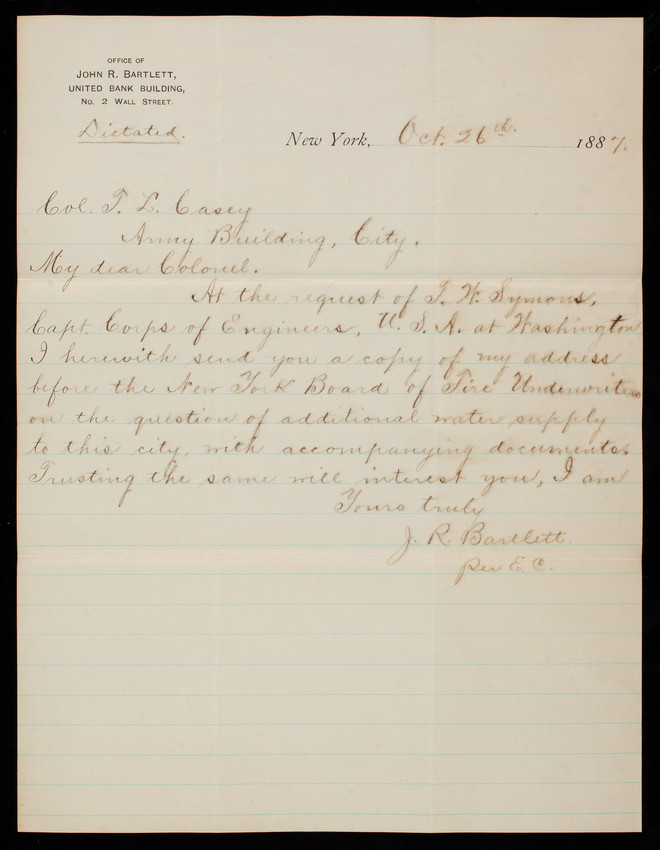 OFFICE OF
JOHN R. BARTLETT,
UNITED BANK BUILDING,
No. 2 WALL STREET.
Dictated.
New York, Oct. 26th. 1887.
Col. T. L. Casey
Army Building, City.
My dear Colonel.
At the request of T. W. Symons,
Capt. Corps of Engineers, U. S. A. at Washington
I herewith send you a copy of my address
before the New York Board of Fire Underwriters
on the question of additional water supply
to this city, with accompanying documents.
Trusting the same will interest you, I am
Yours truly
J. R. Bartlett.
per E C.